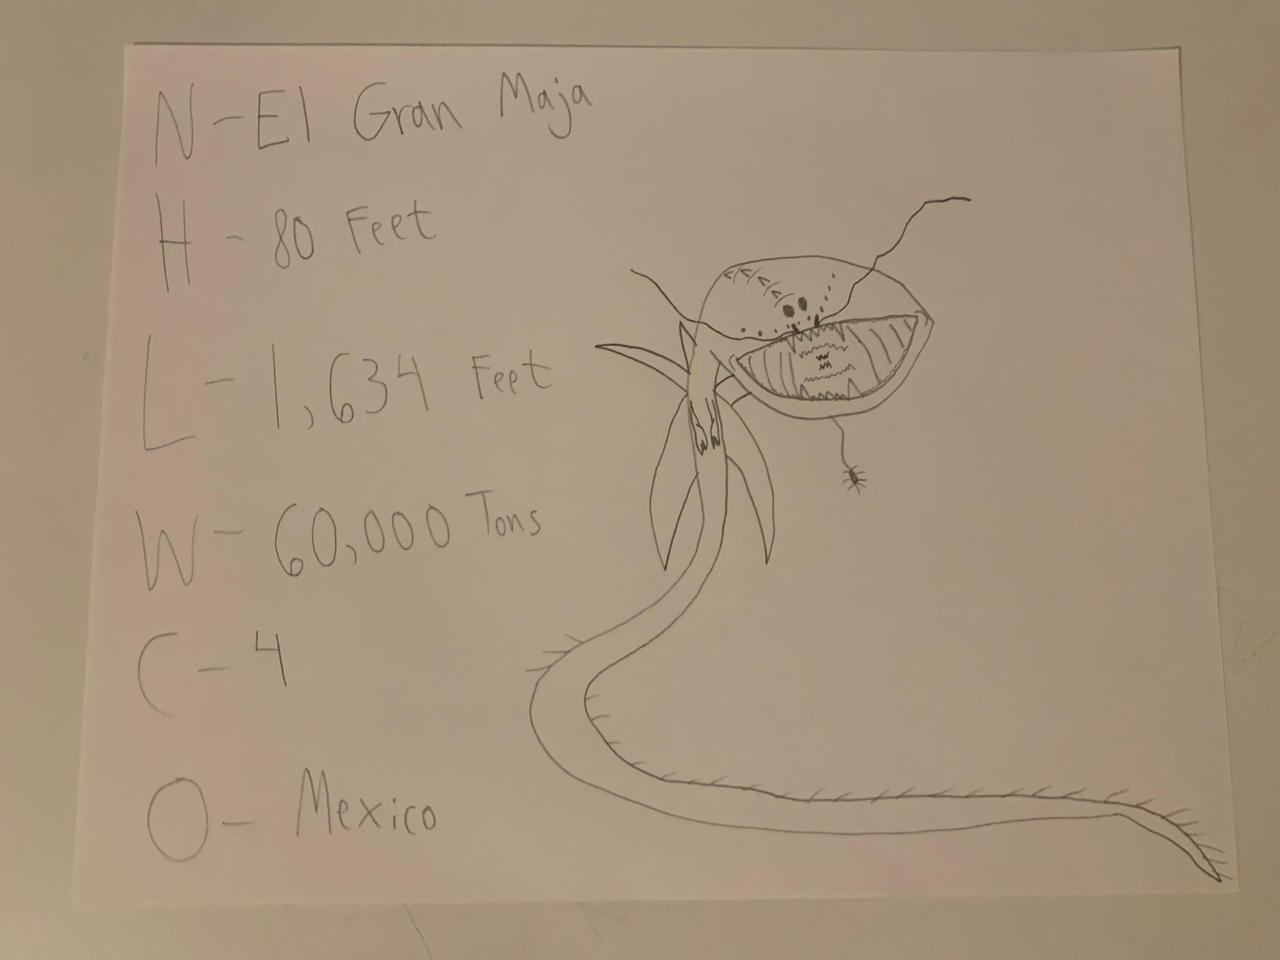 N - El Gran Maja
H - 80 Feet
L - 1,634 Feet
W - 60,000 Tons
C - 4
O - Mexico